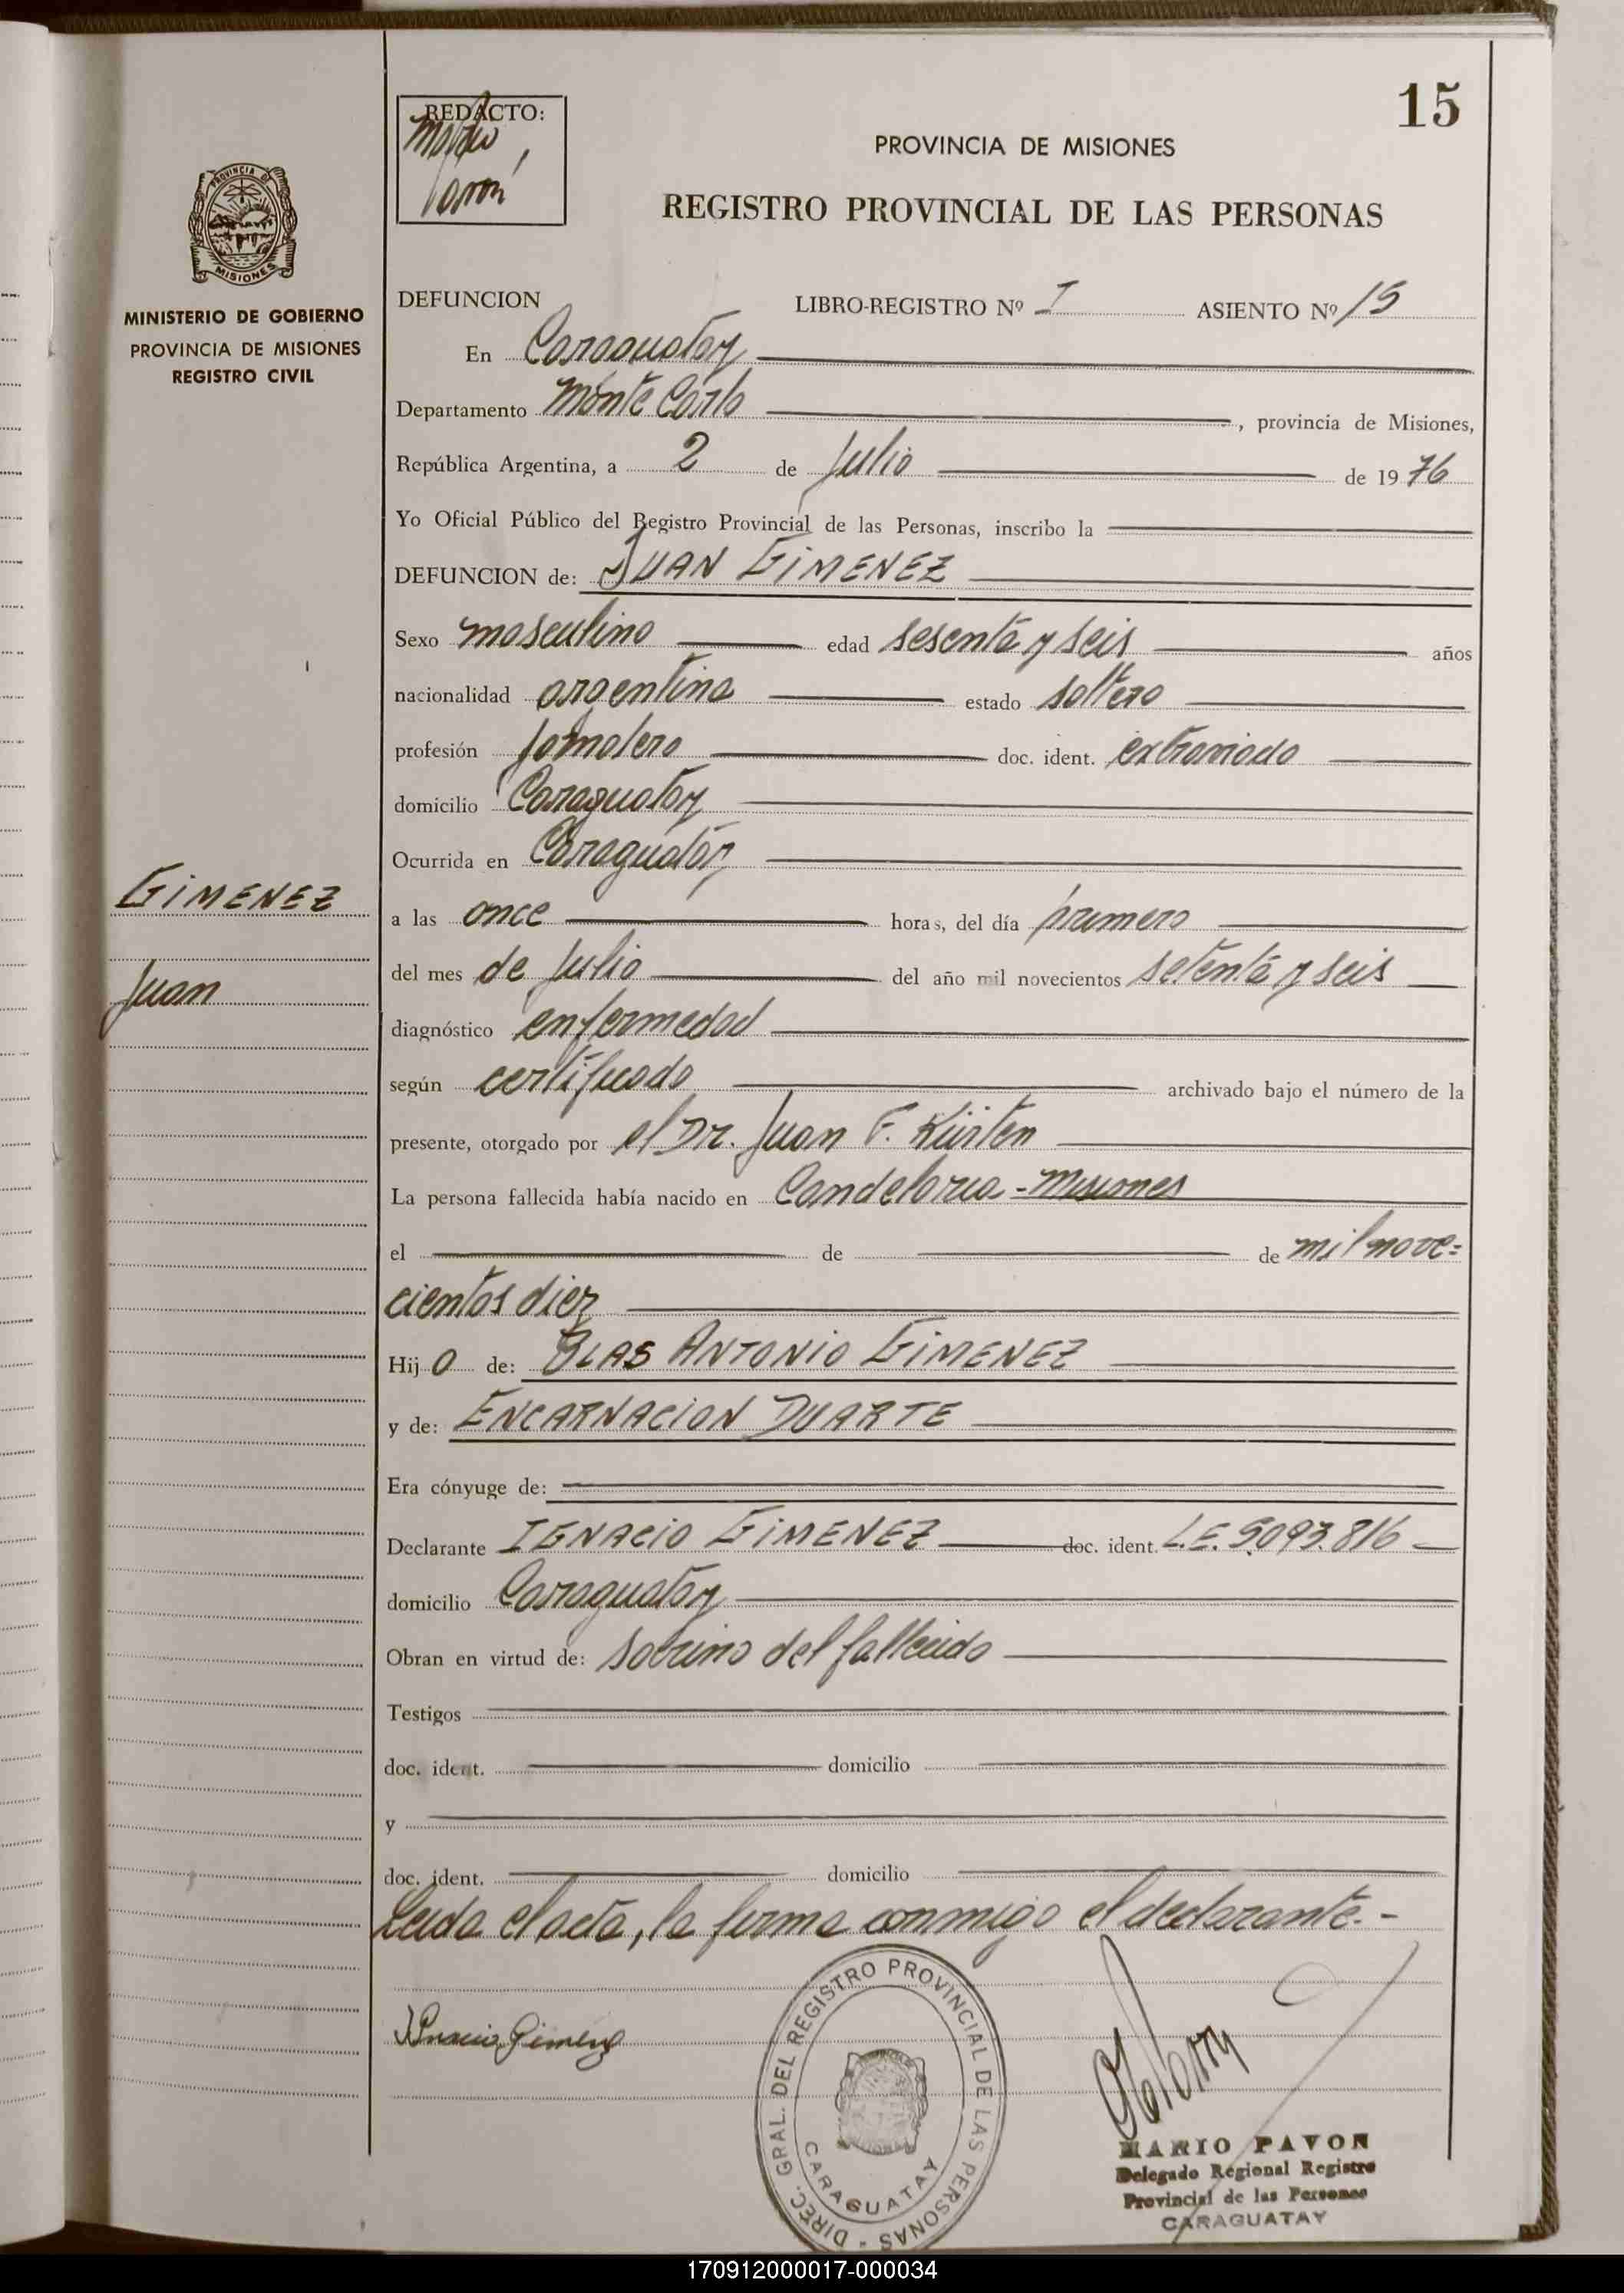 15
REDACTO:
PROVINCIA DE MISIONES
REGISTRO PROVINCIAL DE LAS PERSONAS
PROVINCIA DE
MISIONES
MINISTERIO DE GOBIERNO
PROVINCIA DE MISIONES
REGISTRO CIVIL
GIMENEZ
Juan
DEFUNCION LIBRO-REGISTRO Nº I ASIENTO Nº 15
En Caraguatay
Departamento Monte Carlo, provincia de Misiones,
República Argentina, a 2 de Julio de 1976
Yo Oficial Público del Registro Provincial de las Personas, inscribo la
DEFUNCION de: JUAN GIMENEZ
Sexo masculino edad sesenta y seis años
nacionalidad argentina estado soltero
profesión jornalero doc. ident. extraviado
domicilio Caraguatay
Ocurrida en Caraguatay
a las once horas, del día primero
del mes de Julio del año mil novecientos setenta y seis
diagnóstico enfermedad
según certificado archivado bajo el número de la
presente, otorgado por el Dr. Juan F. Kürten
La persona fallecida había nacido en Candelaria - Misiones
el de de mil nove=
cientos diez
Hijo de: BLAS ANTONIO GIMENEZ
y de: ENCARNACION DUARTE
Era cónyuge de:
Declarante IGNACIO GIMENEZ doc. ident. L.E. 5.093.816
domicilio Caraguatay
Obran en virtud de: sobrino del fallecido
Testigos
doc. ident. domicilio
y
doc. ident. domicilio
Leida el acta, la firma conmigo el declarante.-
Ignacio Gimenez
DIREC. GRAL. DEL REGISTRO PROVINCIAL DE LAS PERSONAS -
CARAGUATAY
MARIO PAVON
Delegado Regional Registro
Provincial de las Personas
CARAGUATAY
170912000017-000034